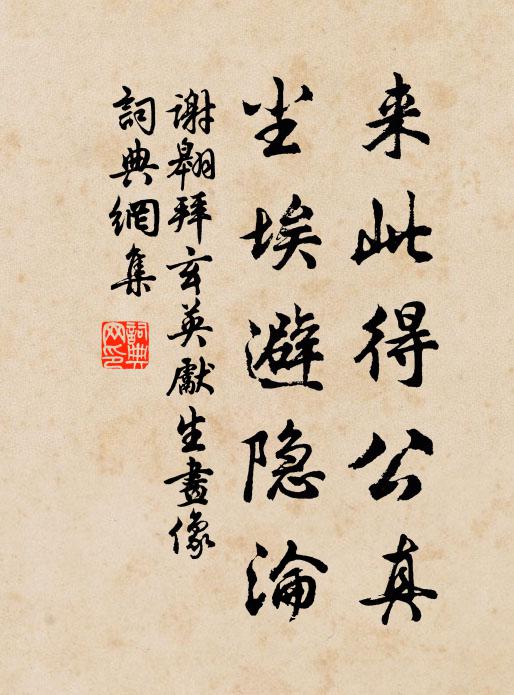 来此得公真
尘埃避隐淪
谢翱拜玄英處生畫像
詞典網集
詞典網印